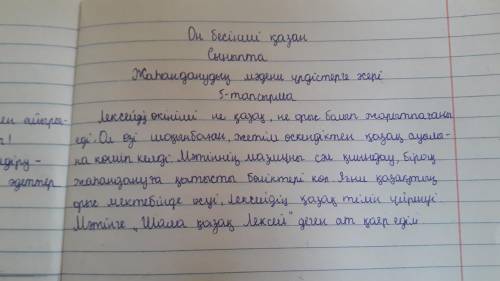 Он бесінші қазан
Сыныпта
Жаһанданудың мәдени үрдістерге әсері
5-тапсырма
ен айкры- Лексейдің өкініші не қазақ, не орыс болып жарытпағаны
! еді. Ол өзі шоқынбаған, жетім өскендіктен қазақ ауылы-
діру- на көшіп келді. Мәтіннің мазмұны сәл қиындау, бірақ
әдеттер жаһандануға қатысты бөліктері көп. Яғни қазақтың
орыс мектебінде оқуы, Лексейдің қазақ тілін үйренуі
Мәтінге "Шала қазақ Лексей" деген ат қояр едім